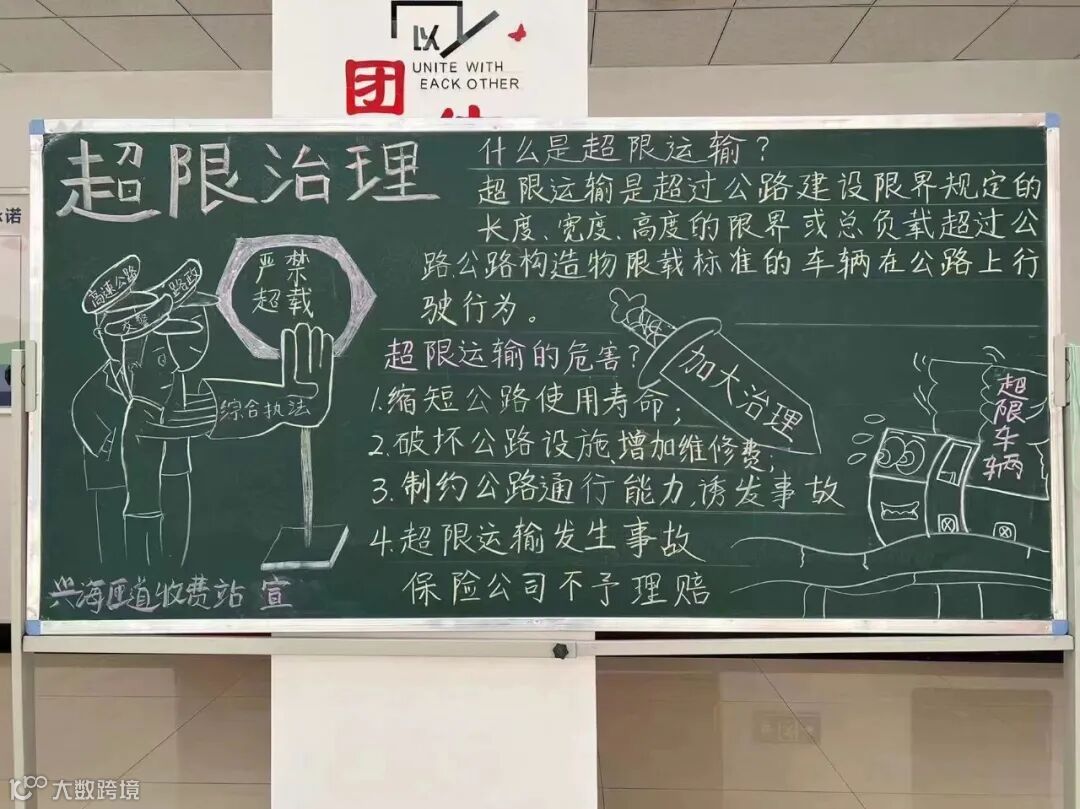 以
UNITE WITH
EACK OTHER
团
承诺
超限治理
什么是超限运输？
超限运输是超过公路建设限界规定的
长度、宽度、高度的限界或总负载超过公
路.公路构造物限载标准的车辆在公路上行
驶行为。
严禁
超载
高速公路
路政
交警
综合执法
超限运输的危害？
1.缩短公路使用寿命；
2.破坏公路设施、增加维修费；
3.制约公路通行能力,诱发事故
4.超限运输发生事故
保险公司不予理赔
加大治理
超限车辆
兴海匝道收费站 宣
大数跨境